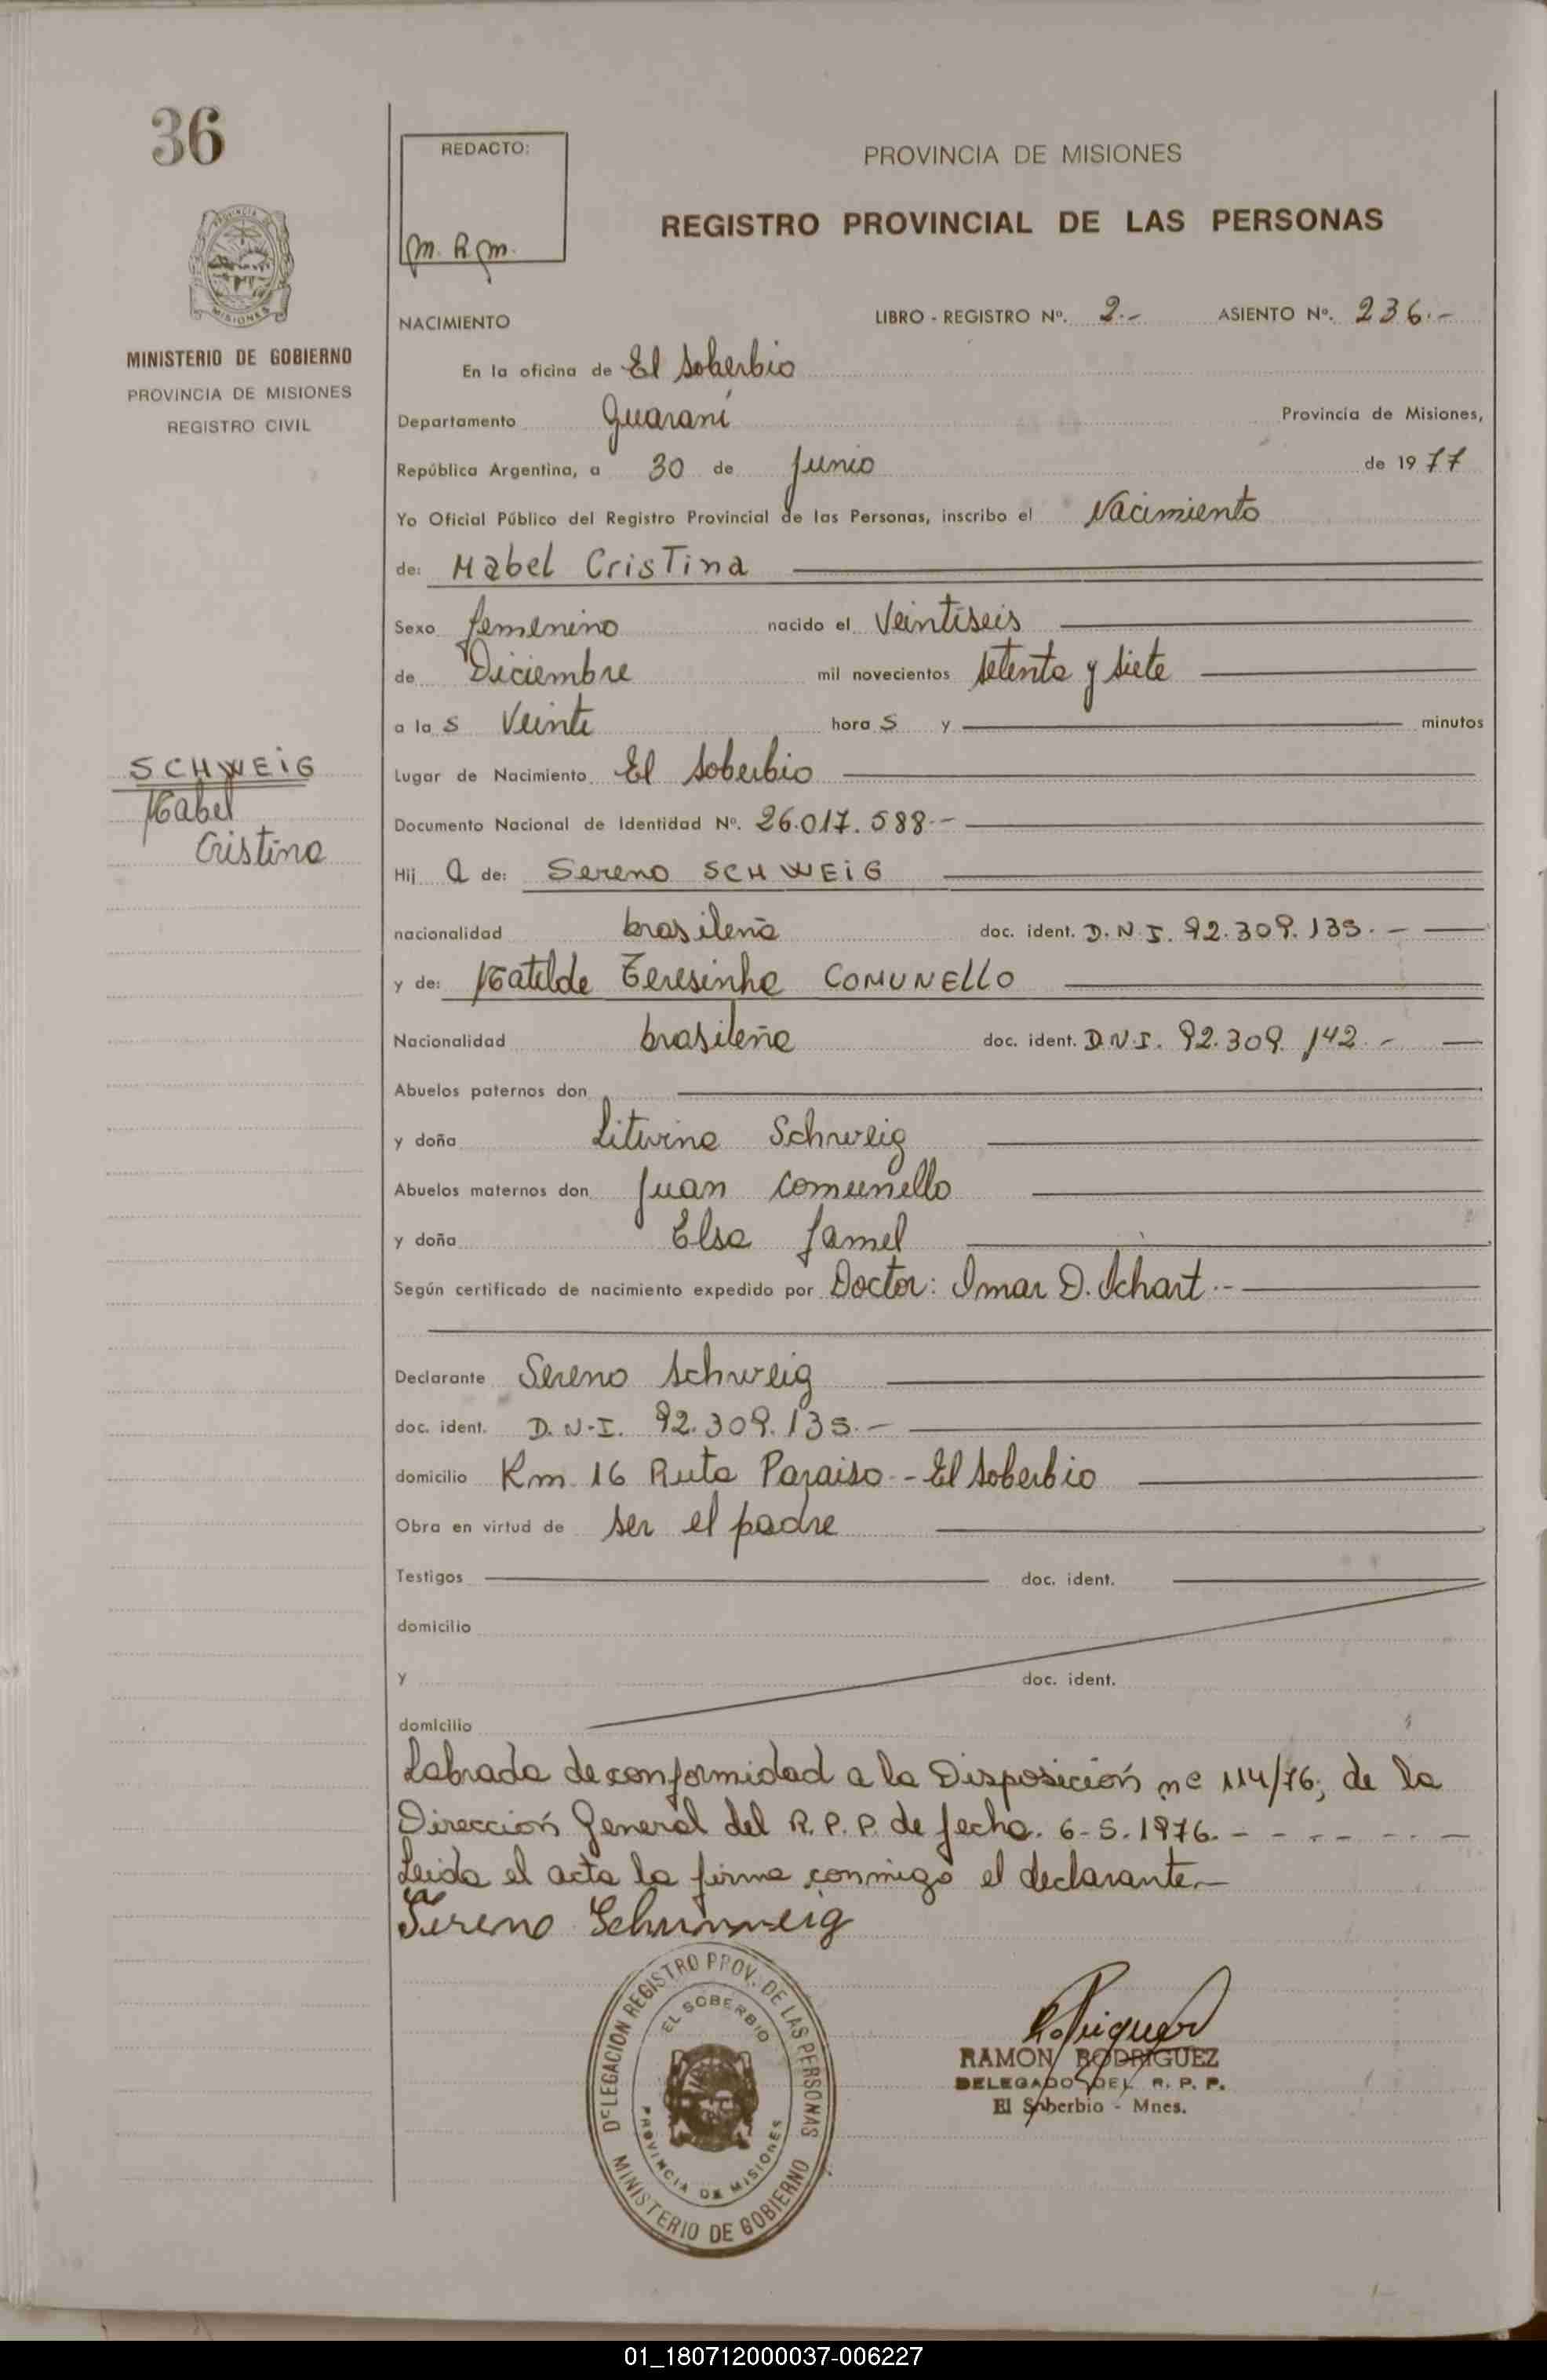 36
REDACTO:
M. R. M.
PROVINCIA DE MISIONES
REGISTRO PROVINCIAL DE LAS PERSONAS
PROVINCIA DE MISIONES
MINISTERIO DE GOBIERNO
PROVINCIA DE MISIONES
REGISTRO CIVIL
NACIMIENTO LIBRO - REGISTRO Nº. 2.- ASIENTO Nº. 236.-
En la oficina de El Soberbio
Departamento Guaraní Provincia de Misiones,
República Argentina, a 30 de Junio de 1977
Yo Oficial Público del Registro Provincial de las Personas, inscribo el Nacimiento
de: Mabel Cristina
Sexo femenino nacido el Veintiseis
de Diciembre mil novecientos setenta y siete
a las Veinte horas y minutos
SCHWEIG
Mabel
Cristina
Lugar de Nacimiento El Soberbio
Documento Nacional de Identidad Nº. 26.017.588.-
Hija de: Sereno SCHWEIG
nacionalidad brasileña doc. ident. D.N.I. 92.309.135.-
y de: Matilde Teresinha COMUNELLO
Nacionalidad brasileña doc. ident. D.N.I. 92.309.142.-
Abuelos paternos don
y doña Litwina Schweig
Abuelos maternos don Juan Comunello
y doña Elsa Jamel
Según certificado de nacimiento expedido por Doctor: Omar D. Ichart.-
Declarante Sereno Schweig
doc. ident. D.N.I. 92.309.135.-
domicilio Km. 16 Ruta Paraiso - El Soberbio
Obra en virtud de ser el padre
Testigos doc. ident.
domicilio
y doc. ident.
domicilio
Labrada de conformidad a la Disposición nº 114/76; de la
Dirección General del R.P.P. de fecha. 6-5.1976.- - - - - - -
Leida el acta la firma conmigo el declarante.-
Sereno Schunweig
DELEGACION REGISTRO PROV. DE LAS PERSONAS
EL SOBERBIO
PROVINCIA DE MISIONES
MINISTERIO DE GOBIERNO
RAMON RODRIGUEZ
DELEGADO DEL R. P. P.
El Soberbio - Mnes.
01_180712000037-006227